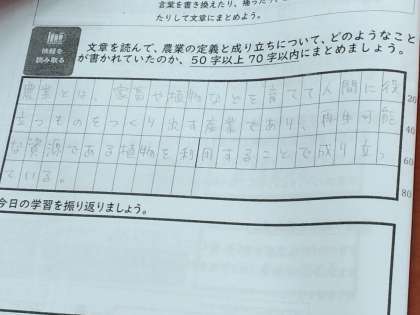 言葉を書き換えたり、補ったり、
たりして文章にまとめよう。
情報を
読み取る
文章を読んで、農業の定義と成り立ちについて、どのようなこと
が書かれていたのか、50字以上70字以内にまとめましょう。
農業とは、家畜や植物などを育てて人間に役
立つものをつくり出す産業であり、再生可能
な資源である植物を利用することで成り立っ
ている。
20
40
60
80
今日の学習を振り返りましょう。